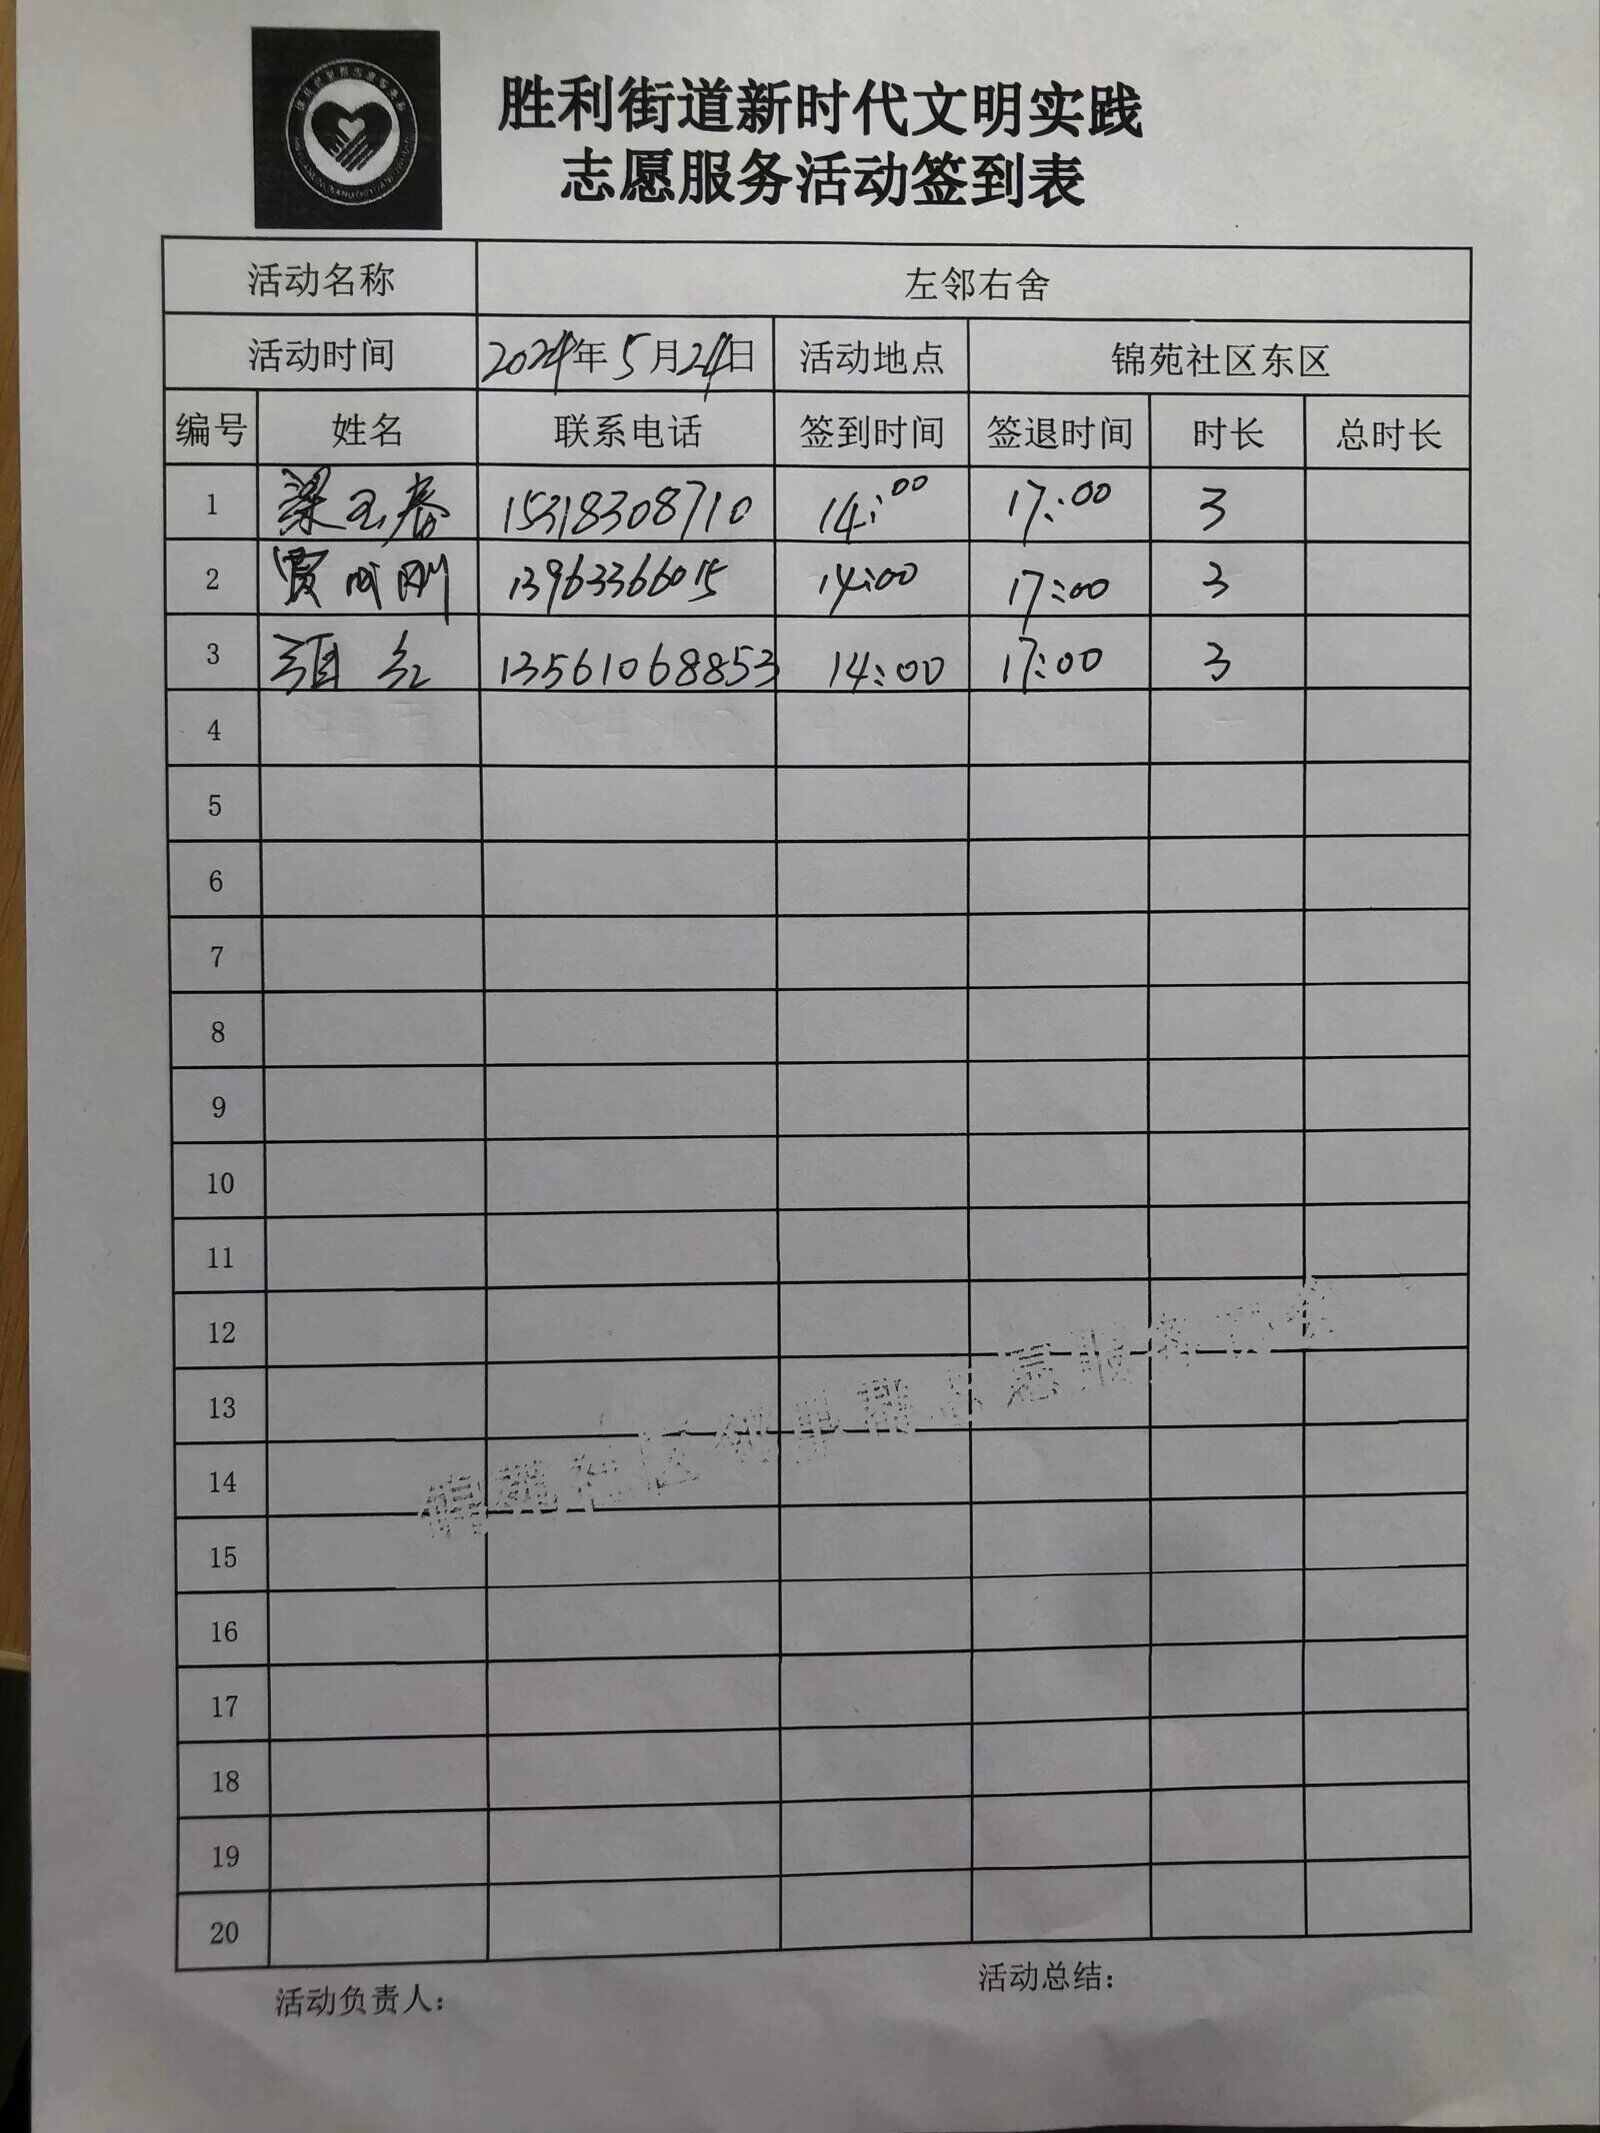 胜利街道新时代文明实践
志愿服务活动签到表
活动名称 左邻右舍
活动时间 2024年5月24日 活动地点 锦苑社区东区
编号 姓名 联系电话 签到时间 签退时间 时长 总时长
1 梁玉春 15318308710 14:00 17:00 3
2 贾成刚 13963366015 14:00 17:00 3
3 红 13561068853 14:00 17:00 3
4
5
6
7
8
9
10
11
12
13
14
15
16
17
18
19
20
活动负责人： 活动总结：